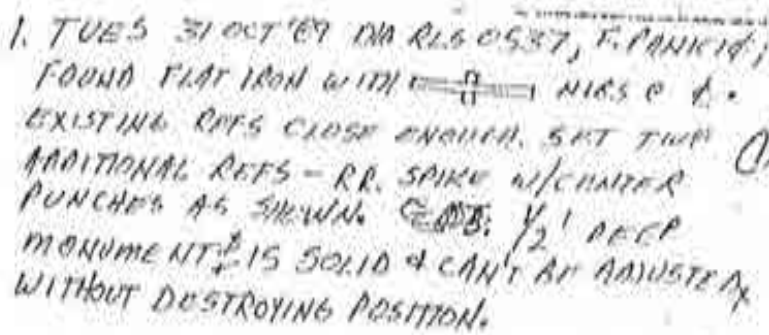 1. TUES 31 OCT '69 RLS 0537,
FOUND FLAT IRON WITH
EXISTING REFS CLOSE ENOUGH. SET TWO
ADDITIONAL REFS - RR. SPIKE W/CENTER
PUNCHES AS SHEWN. 1/2' DEEP
MONUMENT IS SOLID & CAN'T BE ADJUSTED
WITHOUT DESTROYING POSITION.